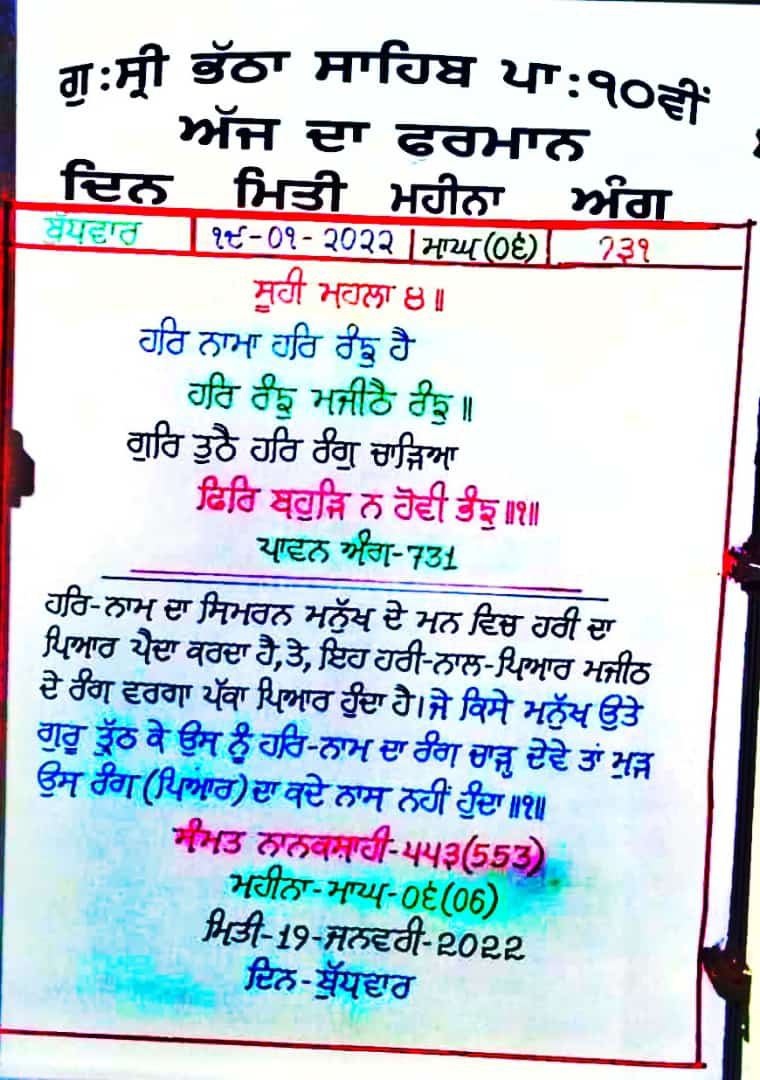 ਗੁ:ਸ੍ਰੀ ਭੱਠਾ ਸਾਹਿਬ ਪਾ:੧੦ਵੀਂ
ਅੱਜ ਦਾ ਫਰਮਾਨ
ਦਿਨ ਮਿਤੀ ਮਹੀਨਾ ਅੰਗ
ਬੁੱਧਵਾਰ ੧੯-੦੧-੨੦੨੨ ਮਾਘ(੦੬) ੭੩੧
ਸੂਹੀ ਮਹਲਾ ੪॥
ਹਰਿ ਨਾਮਾ ਹਰਿ ਰੰਙੁ ਹੈ
ਹਰਿ ਰੰਙੁ ਮਜੀਠੈ ਰੰਙੁ॥
ਗੁਰਿ ਤੁਠੈ ਹਰਿ ਰੰਗੁ ਚਾੜਿਆ
ਫਿਰਿ ਬਹੁੜਿ ਨ ਹੋਵੀ ਭੰਙੁ॥੧॥
ਪਾਵਨ ਅੰਗ-731
ਹਰਿ-ਨਾਮ ਦਾ ਸਿਮਰਨ ਮਨੁੱਖ ਦੇ ਮਨ ਵਿਚ ਹਰੀ ਦਾ
ਪਿਆਰ ਪੈਦਾ ਕਰਦਾ ਹੈ,ਤੇ, ਇਹ ਹਰੀ-ਨਾਲ-ਪਿਆਰ ਮਜੀਠ
ਦੇ ਰੰਗ ਵਰਗਾ ਪੱਕਾ ਪਿਆਰ ਹੁੰਦਾ ਹੈ।ਜੇ ਕਿਸੇ ਮਨੁੱਖ ਉਤੇ
ਗੁਰੂ ਤ੍ਰੁੱਠ ਕੇ ਉਸ ਨੂੰ ਹਰਿ-ਨਾਮ ਦਾ ਰੰਗ ਚਾੜ੍ਹ ਦੇਵੇ ਤਾਂ ਮੁੜ
ਉਸ ਰੰਗ(ਪਿਆਰ)ਦਾ ਕਦੇ ਨਾਸ ਨਹੀਂ ਹੁੰਦਾ॥੧॥
ਸੰਮਤ ਨਾਨਕਸ਼ਾਹੀ-੫੫੩(553)
ਮਹੀਨਾ-ਮਾਘ-੦੬(06)
ਮਿਤੀ-19-ਜਨਵਰੀ-2022
ਦਿਨ-ਬੁੱਧਵਾਰ